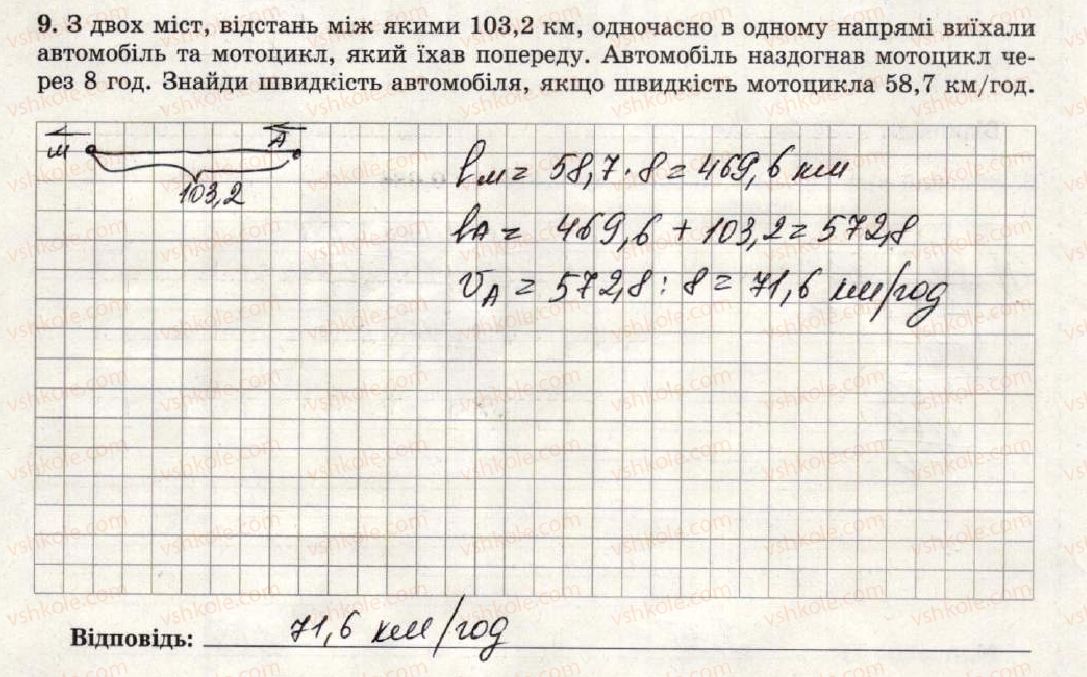 9. З двох міст, відстань між якими 103,2 км, одночасно в одному напрямі виїхали
автомобіль та мотоцикл, який їхав попереду. Автомобіль наздогнав мотоцикл че-
рез 8 год. Знайди швидкість автомобіля, якщо швидкість мотоцикла 58,7 км/год.
М А
103,2
lм = 58,7 · 8 = 469,6 км
lА = 469,6 + 103,2 = 572,8
VА = 572,8 : 8 = 71,6 км/год
Відповідь: 71,6 км/год
vshkole.com